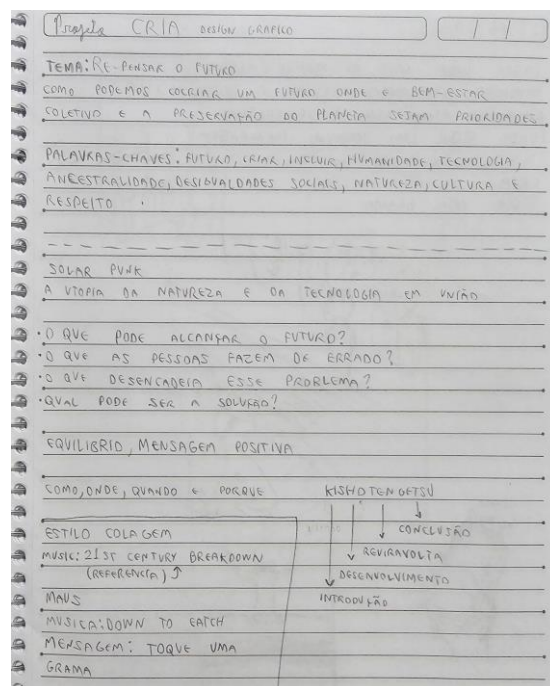 Projeto CRIA DESIGN GRAFICO
/ /
TEMA: RE-PENSAR O FUTURO
COMO PODEMOS COCRIAR UM FUTURO ONDE O BEM-ESTAR
COLETIVO E A PRESERVAÇÃO DO PLANETA SEJAM PRIORIDADES
PALAVRAS-CHAVES: FUTURO, CRIAR, INCLUIR, HUMANIDADE, TECNOLOGIA,
ANCESTRALIDADE, DESIGUALDADES SOCIAIS, NATUREZA, CULTURA E
RESPEITO .
SOLAR PUNK
A UTOPIA DA NATUREZA E DA TECNOLOGIA EM UNIÃO
• O QUE PODE ALCANÇAR O FUTURO?
• O QUE AS PESSOAS FAZEM DE ERRADO?
• O QUE DESENCADEIA ESSE PROBLEMA?
• QUAL PODE SER A SOLUÇÃO?
EQUILIBRIO, MENSAGEM POSITIVA
COMO, ONDE, QUANDO E PORQUE
KISHOTENGETSU
CONCLUSÃO
REVIRAVOLTA
DESENVOLVIMENTO
INTRODUÇÃO
ESTILO COLAGEM
MUSIC: 21ST CENTURY BREAKDOWN
(REFERENCIA)
MAUS
MUSICA: DOWN TO EATCH
MENSAGEM: TOQUE UMA
GRAMA